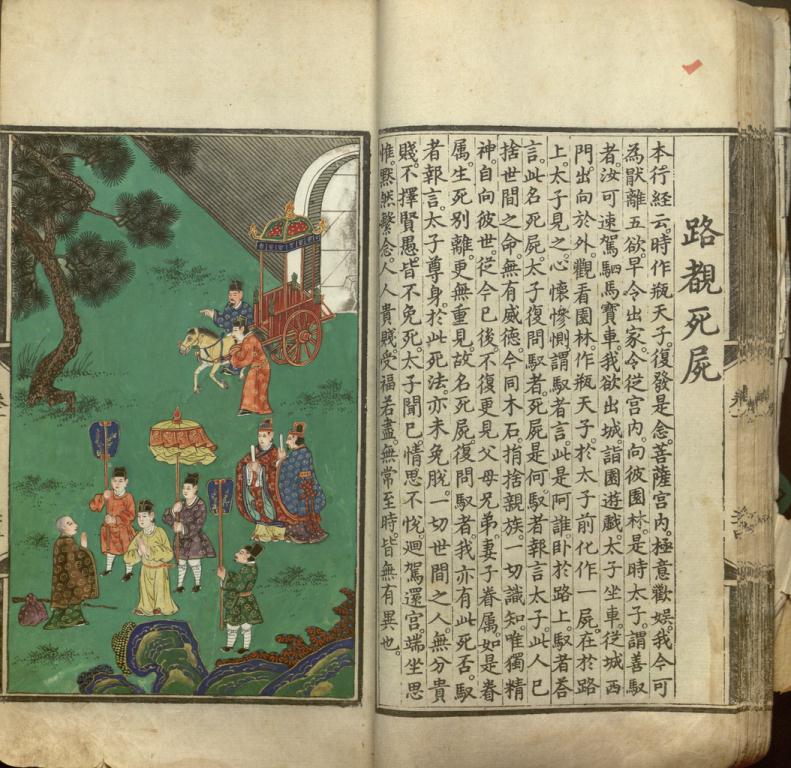 路覩死屍
本行経云。時作瓶天子。復發是念。菩薩宮内。極意歡娛。我今可
為猒離五欲。早令出家。令従宮内。向彼園林。是時太子。謂善馭
者。汝可速駕駟馬寶車。我欲出城。詣園遊戯。太子坐車。従城西
門。出向於外。觀看園林。作瓶天子。於太子前。化作一屍。在於路
上。太子見之。心懷慘惻。謂馭者言。此是阿誰。卧於路上。馭者荅
言。此名死屍。太子復問馭者。死屍是何。馭者報言太子。此人已
捨世間之命。無有威德。今同木石。捐捨親族。一切識知。唯獨精
神。自向彼世。従今已後。不復更見父母兄弟。妻子眷属。如是眷
属。生死别離。更無重見。故名死屍。復問馭者。我亦有此死否。馭
者報言。太子尊身。於此死法。亦未免脫。一切世間之人。無分貴
賤。不擇賢愚。皆不免死。太子聞已。情思不悅。廻駕還宮。端坐思
惟。黙然繫念。人人貴賤。受福若盡。無常至時。皆無有異也。